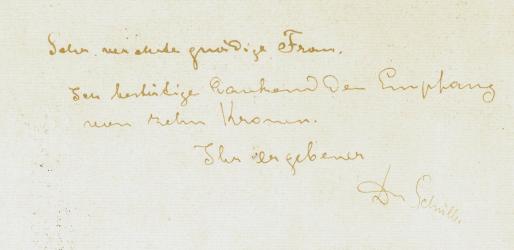 Sehr verehrte gnädige Frau.
Ich bestätige dankend den Empfang
von zehn Kronen.
Ihr ergebener
Dr Schüller